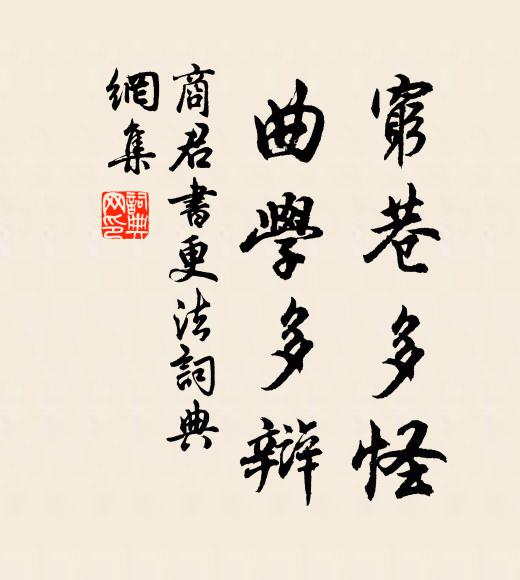 窮巷多怪
曲學多辯
商君書更法詞典
網集
詞典
網印